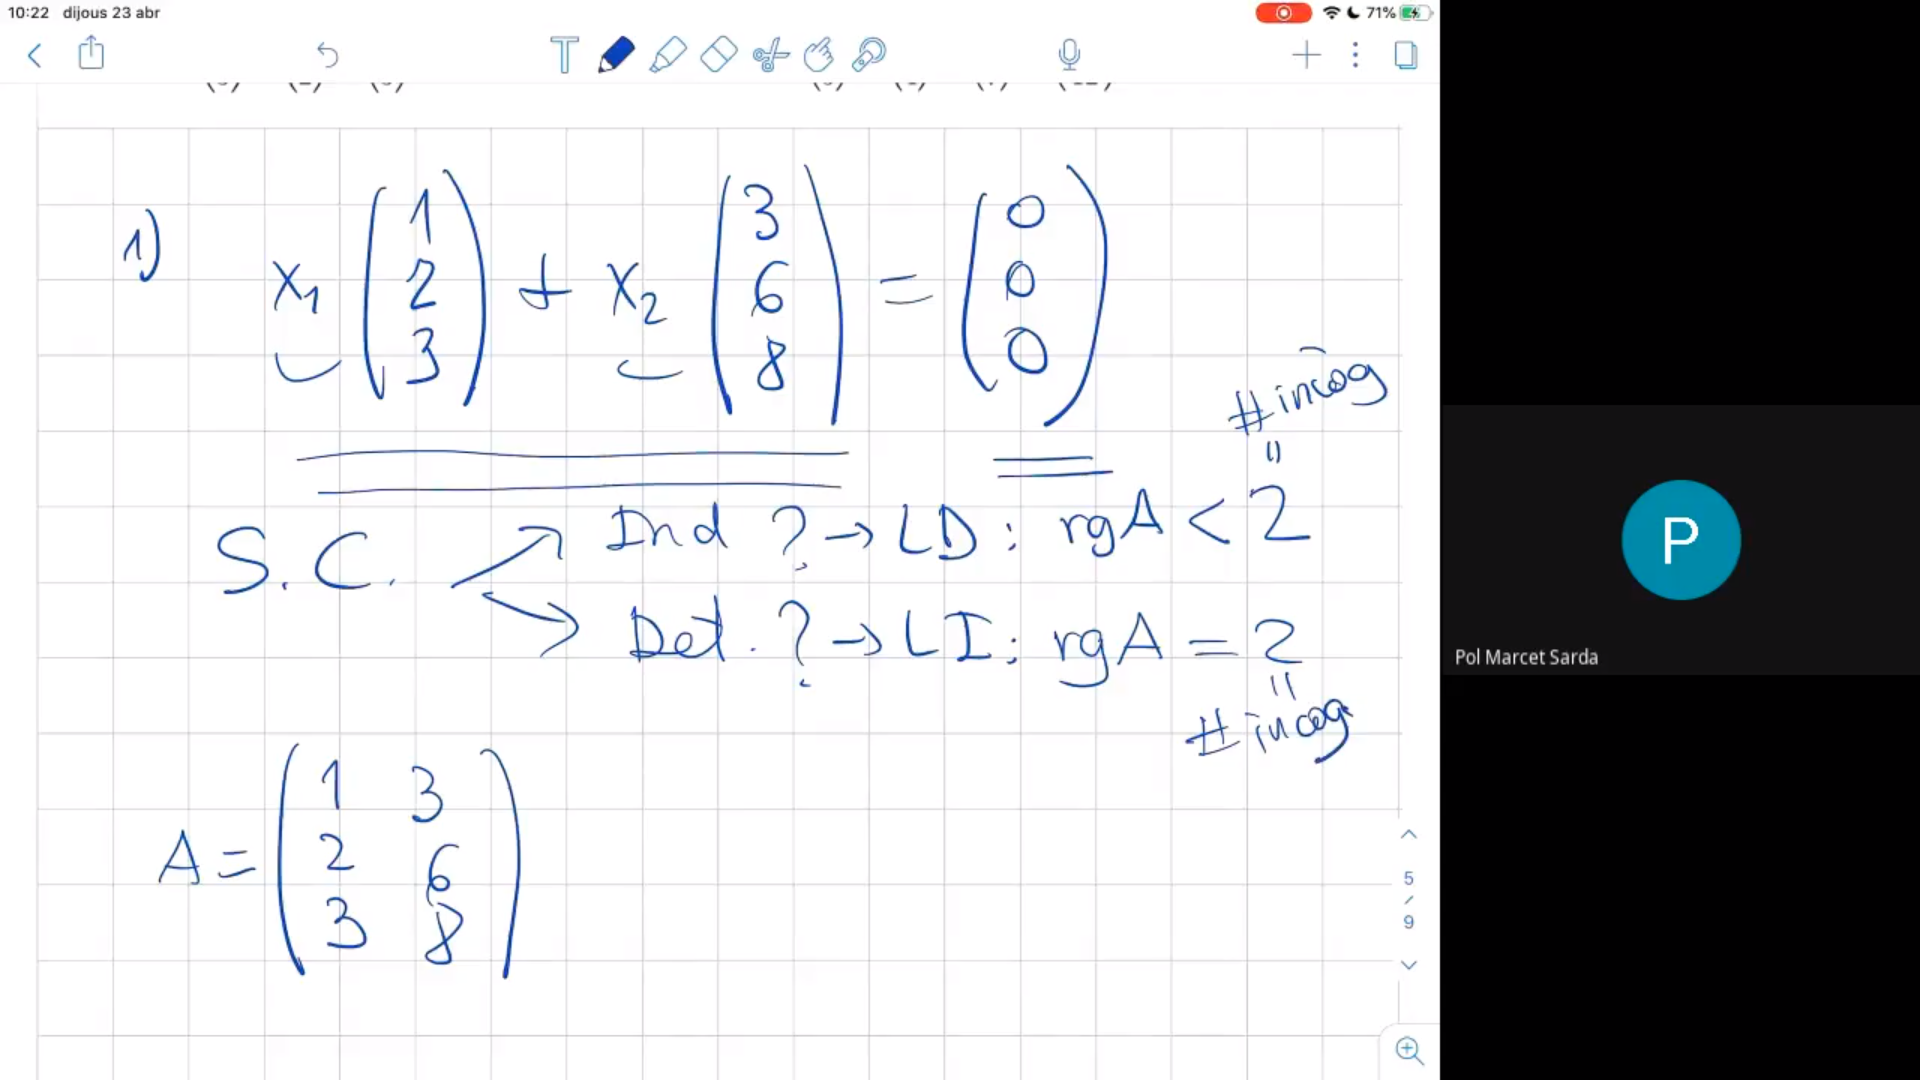 10:22 dijous 23 abr
71%
T
1) x₁ (1 2 3) + x₂ (3 6 8) = (0 0 0)
#incog
=
S.C. → Ind ? → LD : rgA < 2
→ Det. ? → LI : rgA = 2
=
#incog
A = (1 3
2 6
3 8)
5
/
9
P
Pol Marcet Sarda